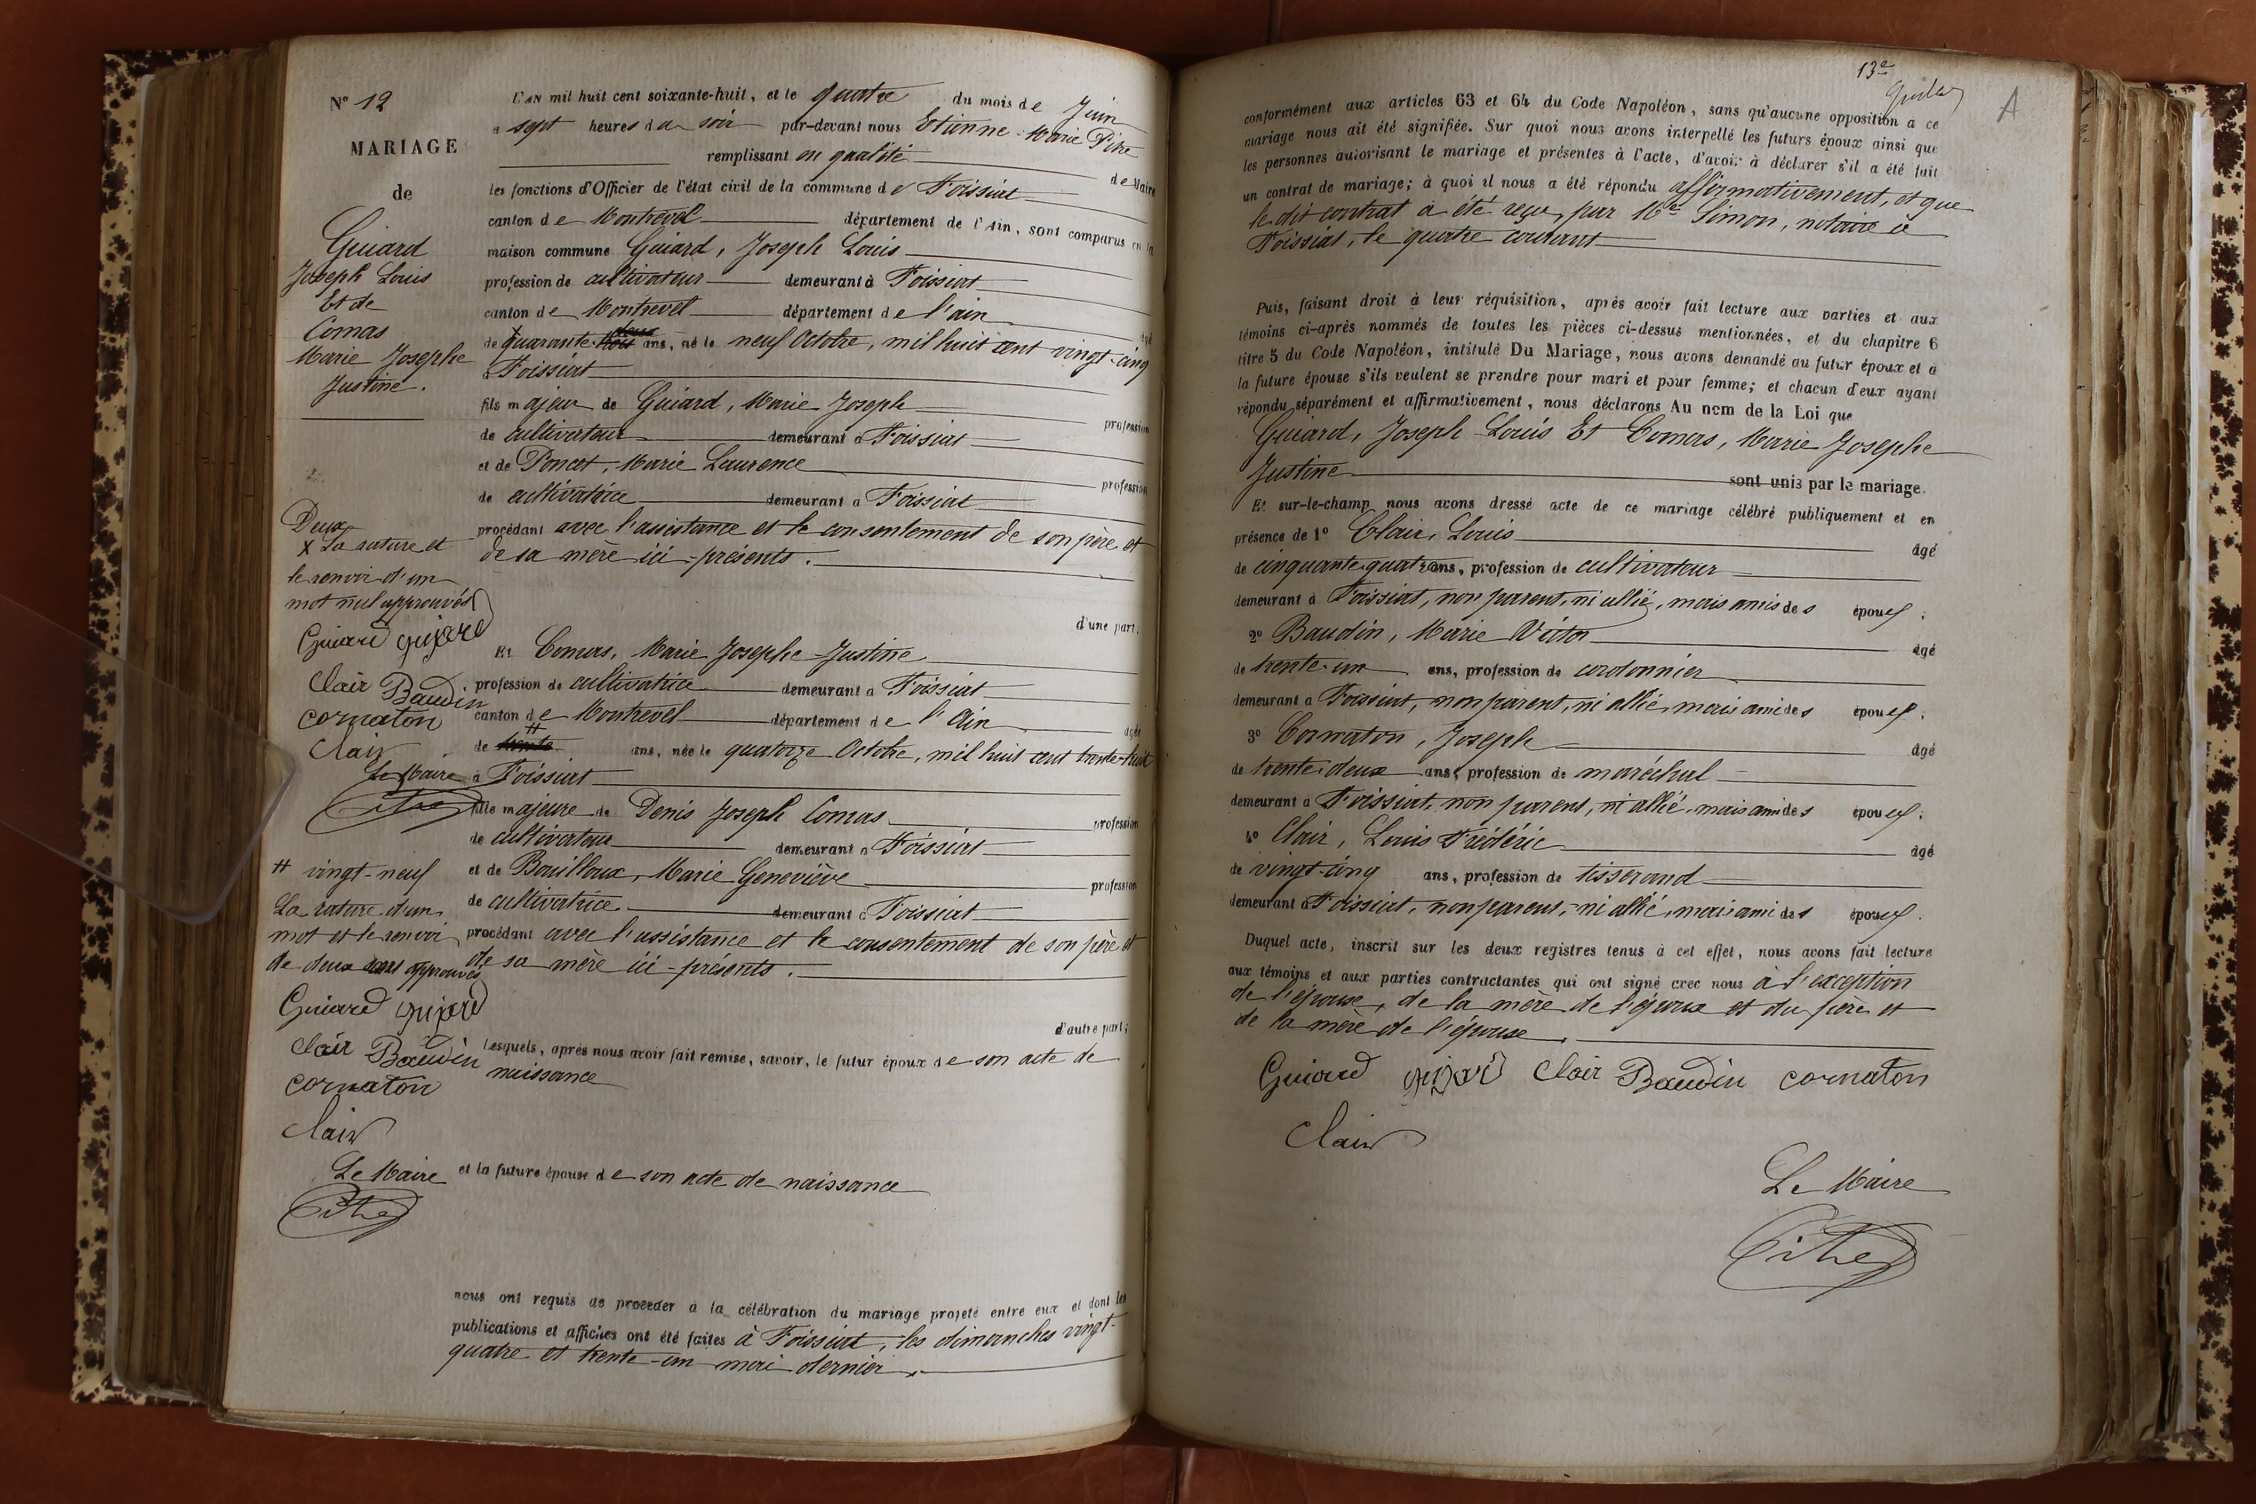 N° 12
MARIAGE
de
Guiard
Joseph Louis
Et de
Comas
Marie Josephe
Justine.
Deux
X La rature et
le renvoi d'un
mot nul approuvés
Guiard Guiard
Clair Baudin
cornaton
Clair
Le Maire
Pitre
# vingt-neuf
La rature d'un
mot et le renvoi
de deux approuvés
Guiard Guiard
Clair Baudin
cornaton
Clair
Le Maire
Pitre
L'AN mil huit cent soixante-huit, et le quatre du mois de Juin
à sept heures du soir par-devant nous Etienne-Marie Pitre
remplissant en qualité de Maire
les fonctions d'Officier de l'état civil de la commune de Foissiat
canton de Montrevel département de l'Ain, sont comparus en la
maison commune Guiard, Joseph Louis
profession de cultivateur demeurant à Foissiat
canton de Montrevel département de l'ain âgé
de X quarante deux ans, né le neuf Octobre, mil huit cent vingt-cinq
à Foissiat
fils majeur de Guiard, Marie Joseph profession
de cultivateur demeurant à Foissiat
et de Poncet, Marie Laurence profession
de cultivatrice demeurant à Foissiat
procédant avec l'assistance et le consentement de son père et
de sa mère ici-présents.
d'une part;
Et Comas, Marie Josephe Justine
profession de cultivatrice demeurant à Foissiat
canton de Montrevel département de l'Ain âgée
de trente # ans, née le quatorze Octobre, mil huit cent trente-huit
à Foissiat
fille majeure de Denis Joseph Comas profession
de cultivateur demeurant à Foissiat
et de Bouilloux, Marie Geneviève profession
de cultivatrice demeurant à Foissiat
procédant avec l'assistance et le consentement de son père et
de sa mère ici-présents.
d'autre part;
Lesquels, après nous avoir fait remise, savoir, le futur époux de son acte de
naissance
et la future épouse de son acte de naissance
nous ont requis de procéder à la célébration du mariage projeté entre eux et dont les
publications et affiches ont été faites à Foissiat, les dimanches vingt-
quatre et trente-un mai dernier.
13e
A
conformément aux articles 63 et 64 du Code Napoléon, sans qu'aucune opposition a ce
mariage nous ait été signifiée. Sur quoi nous avons interpellé les futurs époux ainsi que
les personnes autorisant le mariage et présentes à l'acte, d'avoir à déclarer s'il a été fait
un contrat de mariage; à quoi il nous a été répondu affirmativement, et que
le dit contrat a été reçu, par Me Simon, notaire à
Foissiat, le quatre courant
Puis, faisant droit à leur réquisition, après avoir fait lecture aux parties et aux
témoins ci-après nommés de toutes les pièces ci-dessus mentionnées, et du chapitre 6
titre 5 du Code Napoléon, intitulé Du Mariage, nous avons demandé au futur époux et à
la future épouse s'ils veulent se prendre pour mari et pour femme; et chacun d'eux ayant
répondu séparément et affirmativement, nous déclarons Au nom de la Loi que
Guiard, Joseph Louis Et Comas, Marie Josephe
Justine sont unis par le mariage.
Et sur-le-champ nous avons dressé acte de ce mariage célébré publiquement et en
présence de 1° Clair, Louis âgé
de cinquante-quatre ans, profession de cultivateur
demeurant à Foissiat, non parent, ni allié, mais ami des époux;
2° Baudin, Marie Victor âgé
de trente-un ans, profession de cordonnier
demeurant à Foissiat, non parent, ni allié, mais ami des époux;
3° Cornaton, Joseph âgé
de trente-deux ans, profession de maréchal
demeurant à Foissiat, non parent, ni allié, mais ami des époux;
4° Clair, Louis Frédéric âgé
de vingt-cinq ans, profession de tisserand
demeurant à Foissiat, non parent, ni allié, mais ami des époux.
Duquel acte, inscrit sur les deux registres tenus à cet effet, nous avons fait lecture
aux témoins et aux parties contractantes qui ont signé avec nous à l'exception
de l'épouse, de la mère de l'époux et du père et
de la mère de l'épouse.
Guiard Guiard Clair Baudin cornaton
Clair
Le Maire
Pitre